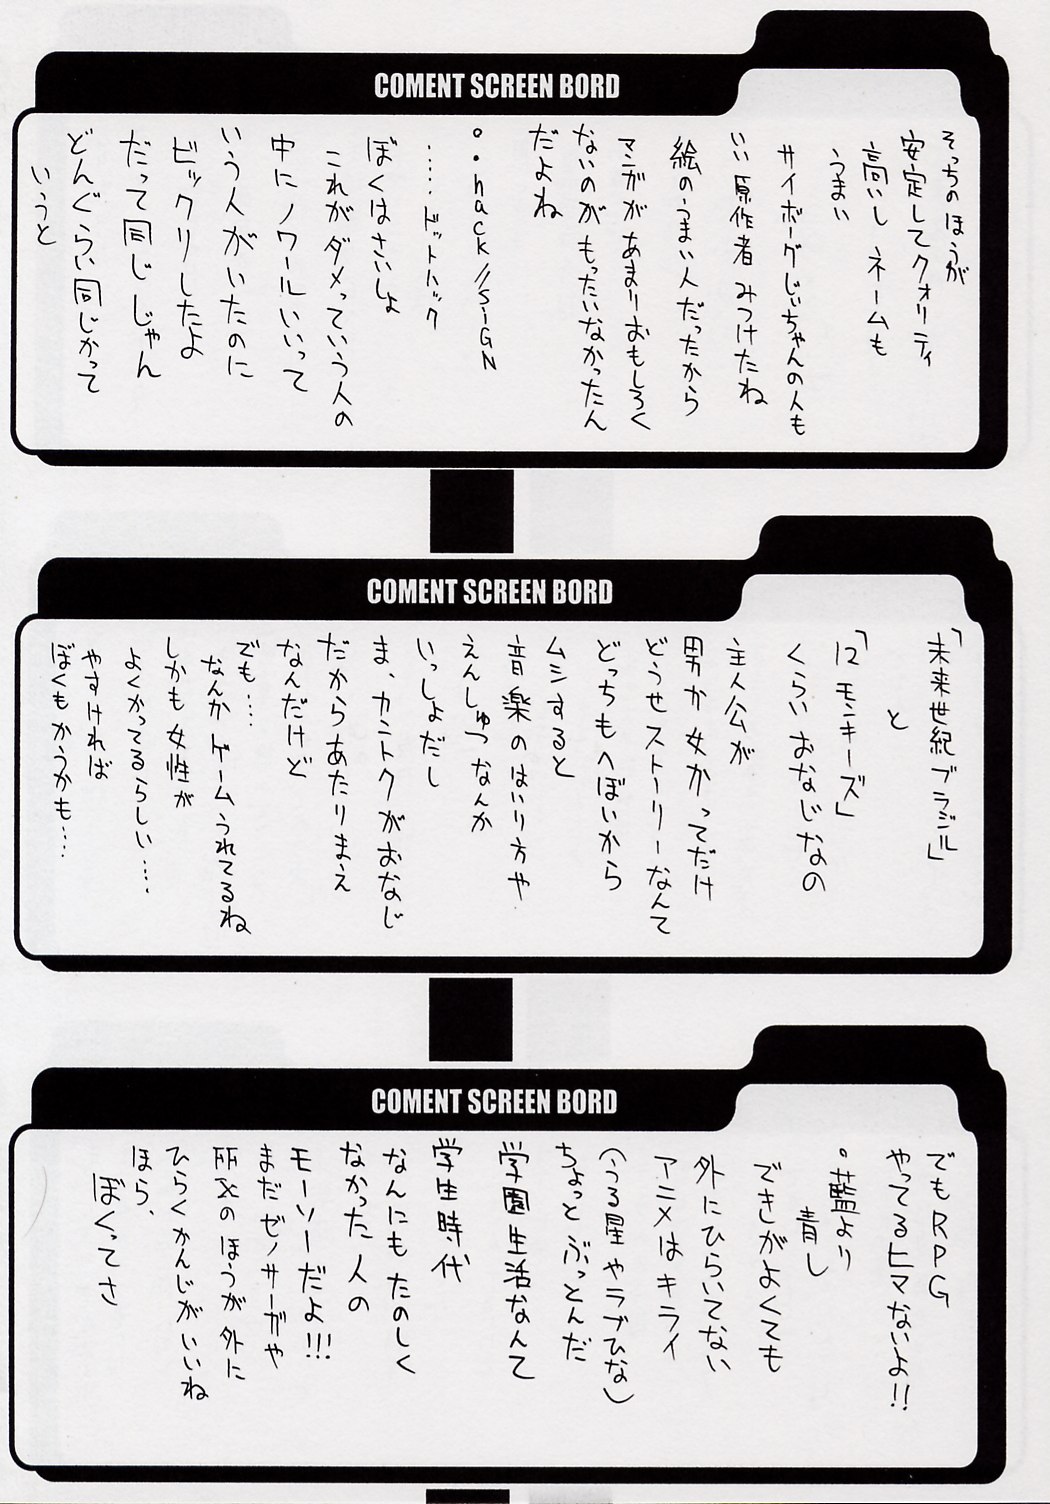 COMENT SCREEN BORD
そっちのほうが
安定してクォリティ
高いし ネームも
うまい
サイボーグじいちゃんの人も
いい原作者 みつけたね
絵のうまい人だったから
マンガがあまりおもしろく
ないのがもったいなかったん
だよね
。.hack//SIGN
……ドットハック
ぼくはさいしょ
これがダメっていう人の
中にノワールいいって
いう人がいたのに
ビックリしたよ
だって同じじゃん
どんぐらい同じかって
いうと
COMENT SCREEN BORD
「未来世紀ブラジル」
と
「12モンキーズ」
くらい おなじなの
主人公が
男か女かってだけ
どうせストーリーなんて
どっちもへぼいから
ムシすると
音楽のはいり方や
えんしゅつなんか
いっしょだし
ま、カントクがおなじ
だからあたりまえ
なんだけど
でも……
なんかゲームうれてるね
しかも女性が
よくかってるらしい……
やすければ
ぼくもかうかも……
COMENT SCREEN BORD
でもRPG
やってるヒマないよ!!
。藍より
青し
できがよくても
外にひらいてない
アニメはキライ
(うる星やラブひな)
ちょっとぶっとんだ
学園生活なんて
学生時代
なんにもたのしく
なかった人の
モーソーだよ!!!
まだゼノサーガや
所さんのほうが外に
ひらくかんじがいいね
ほら、
ぼくってさ